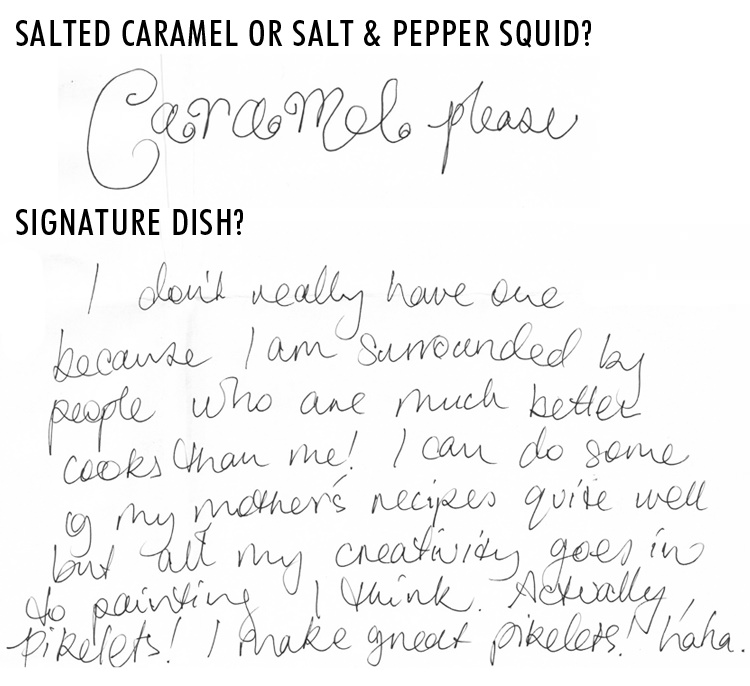 SALTED CARAMEL OR SALT & PEPPER SQUID?
Caramel please
SIGNATURE DISH?
I don't really have one
because I am surrounded by
people who are much better
cooks than me! I can do some
of my mother's recipes quite well
but all my creativity goes in
to painting I think. Actually,
pikelets! I make great pikelets! haha.